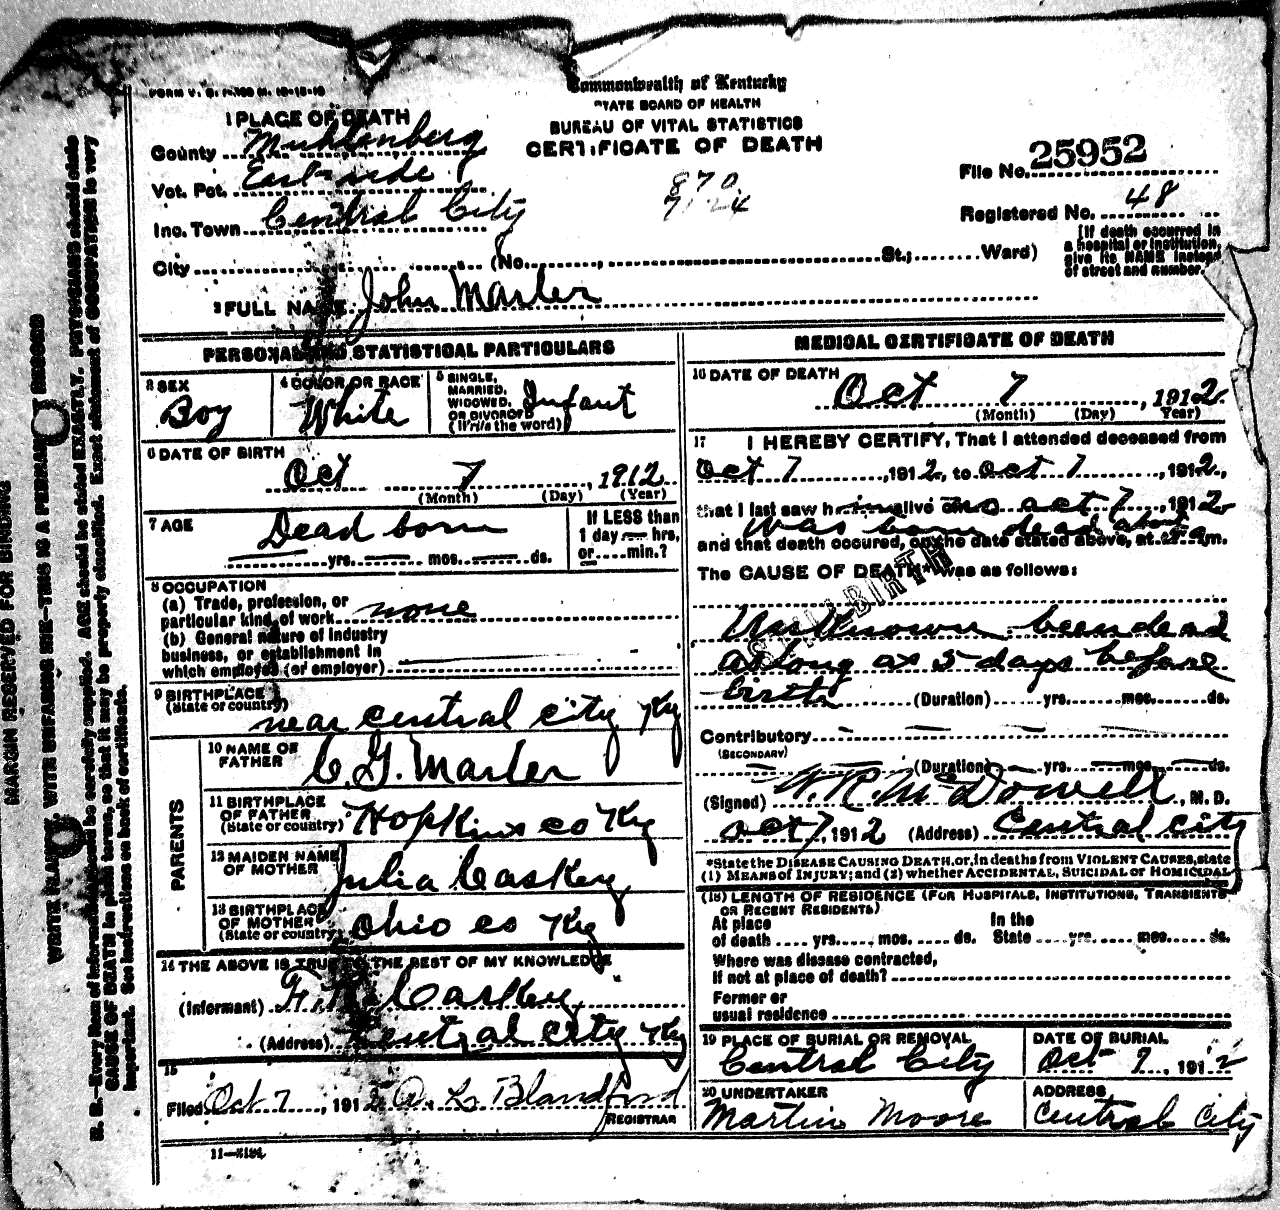 FORM V. S.
Commonwealth of Kentucky
STATE BOARD OF HEALTH
BUREAU OF VITAL STATISTICS
CERTIFICATE OF DEATH
1 PLACE OF DEATH
County Muhlenberg
Vot. Pct.
Inc. Town Central City
City (No. , St.; Ward)
870
File No. 25952
Registered No. 48
(If death occurred in
a hospital or institution,
give its NAME instead
of street and number.
2 FULL NAME John Marler
PERSONAL AND STATISTICAL PARTICULARS
3 SEX
Boy
4 COLOR OR RACE
White
5 SINGLE,
MARRIED,
WIDOWED,
OR DIVORCED
(Write the word)
Infant
6 DATE OF BIRTH
Oct 7, 1912
(Month) (Day) (Year)
7 AGE
Dead born
yrs. mos. ds.
If LESS than
1 day hrs,
or min.?
8 OCCUPATION
(a) Trade, profession, or
particular kind of work none
(b) General nature of industry
business, or establishment in
which employed (or employer)
9 BIRTHPLACE
(State or country)
near central city Ky
PARENTS
10 NAME OF
FATHER C. G. Marler
11 BIRTHPLACE
OF FATHER
(State or country) Hopkins co Ky
12 MAIDEN NAME
OF MOTHER Julia Caskey
13 BIRTHPLACE
OF MOTHER
(State or country) Ohio co Ky
14 THE ABOVE IS TRUE TO THE BEST OF MY KNOWLEDGE
(Informant) Caskey
(Address) Central city Ky
15
Filed Oct 7, 1912 A. L. Blandford
REGISTRAR
11-3184
MEDICAL CERTIFICATE OF DEATH
16 DATE OF DEATH
Oct 7, 1912
(Month) (Day) Year)
17 I HEREBY CERTIFY, That I attended deceased from
Oct 7, 1912, to Oct 7, 1912,
that I last saw him alive on Oct 7, 1912
was born dead about
and that death occured, on the date stated above, at m.
The CAUSE OF DEATH* was as follows:
STILL BIRTH
Unknown been dead
as long as 5 days before
birth (Duration) yrs. mos. ds.
Contributory
(SECONDARY)
(Duration) yrs. mos. ds.
(Signed) W. R. McDowell, M. D.
Oct 7, 1912 (Address) Central city
*State the DISEASE CAUSING DEATH, or, in deaths from VIOLENT CAUSES, state
(1) MEANS of INJURY; and (2) whether ACCIDENTAL, SUICIDAL or HOMICIDAL
(18) LENGTH OF RESIDENCE (FOR HOSPITALS, INSTITUTIONS, TRANSIENTS
OR RECENT RESIDENTS)
At place
of death yrs. mos. ds.
In the
State yrs. mos. ds.
Where was disease contracted,
If not at place of death?
Former or
usual residence
19 PLACE OF BURIAL OR REMOVAL
Central City
DATE OF BURIAL
Oct 7, 1912
20 UNDERTAKER
Martin Moore
ADDRESS
Central City
MARGIN RESERVED FOR BINDING
WRITE PLAINLY, WITH UNFADING INK—THIS IS A PERMANENT RECORD
N. B.—Every item of information should be carefully supplied. AGE should be stated EXACTLY. PHYSICIANS should state
CAUSE OF DEATH in plain terms, so that it may be properly classified. Exact statement of OCCUPATION is very
important. See instructions on back of certificate.